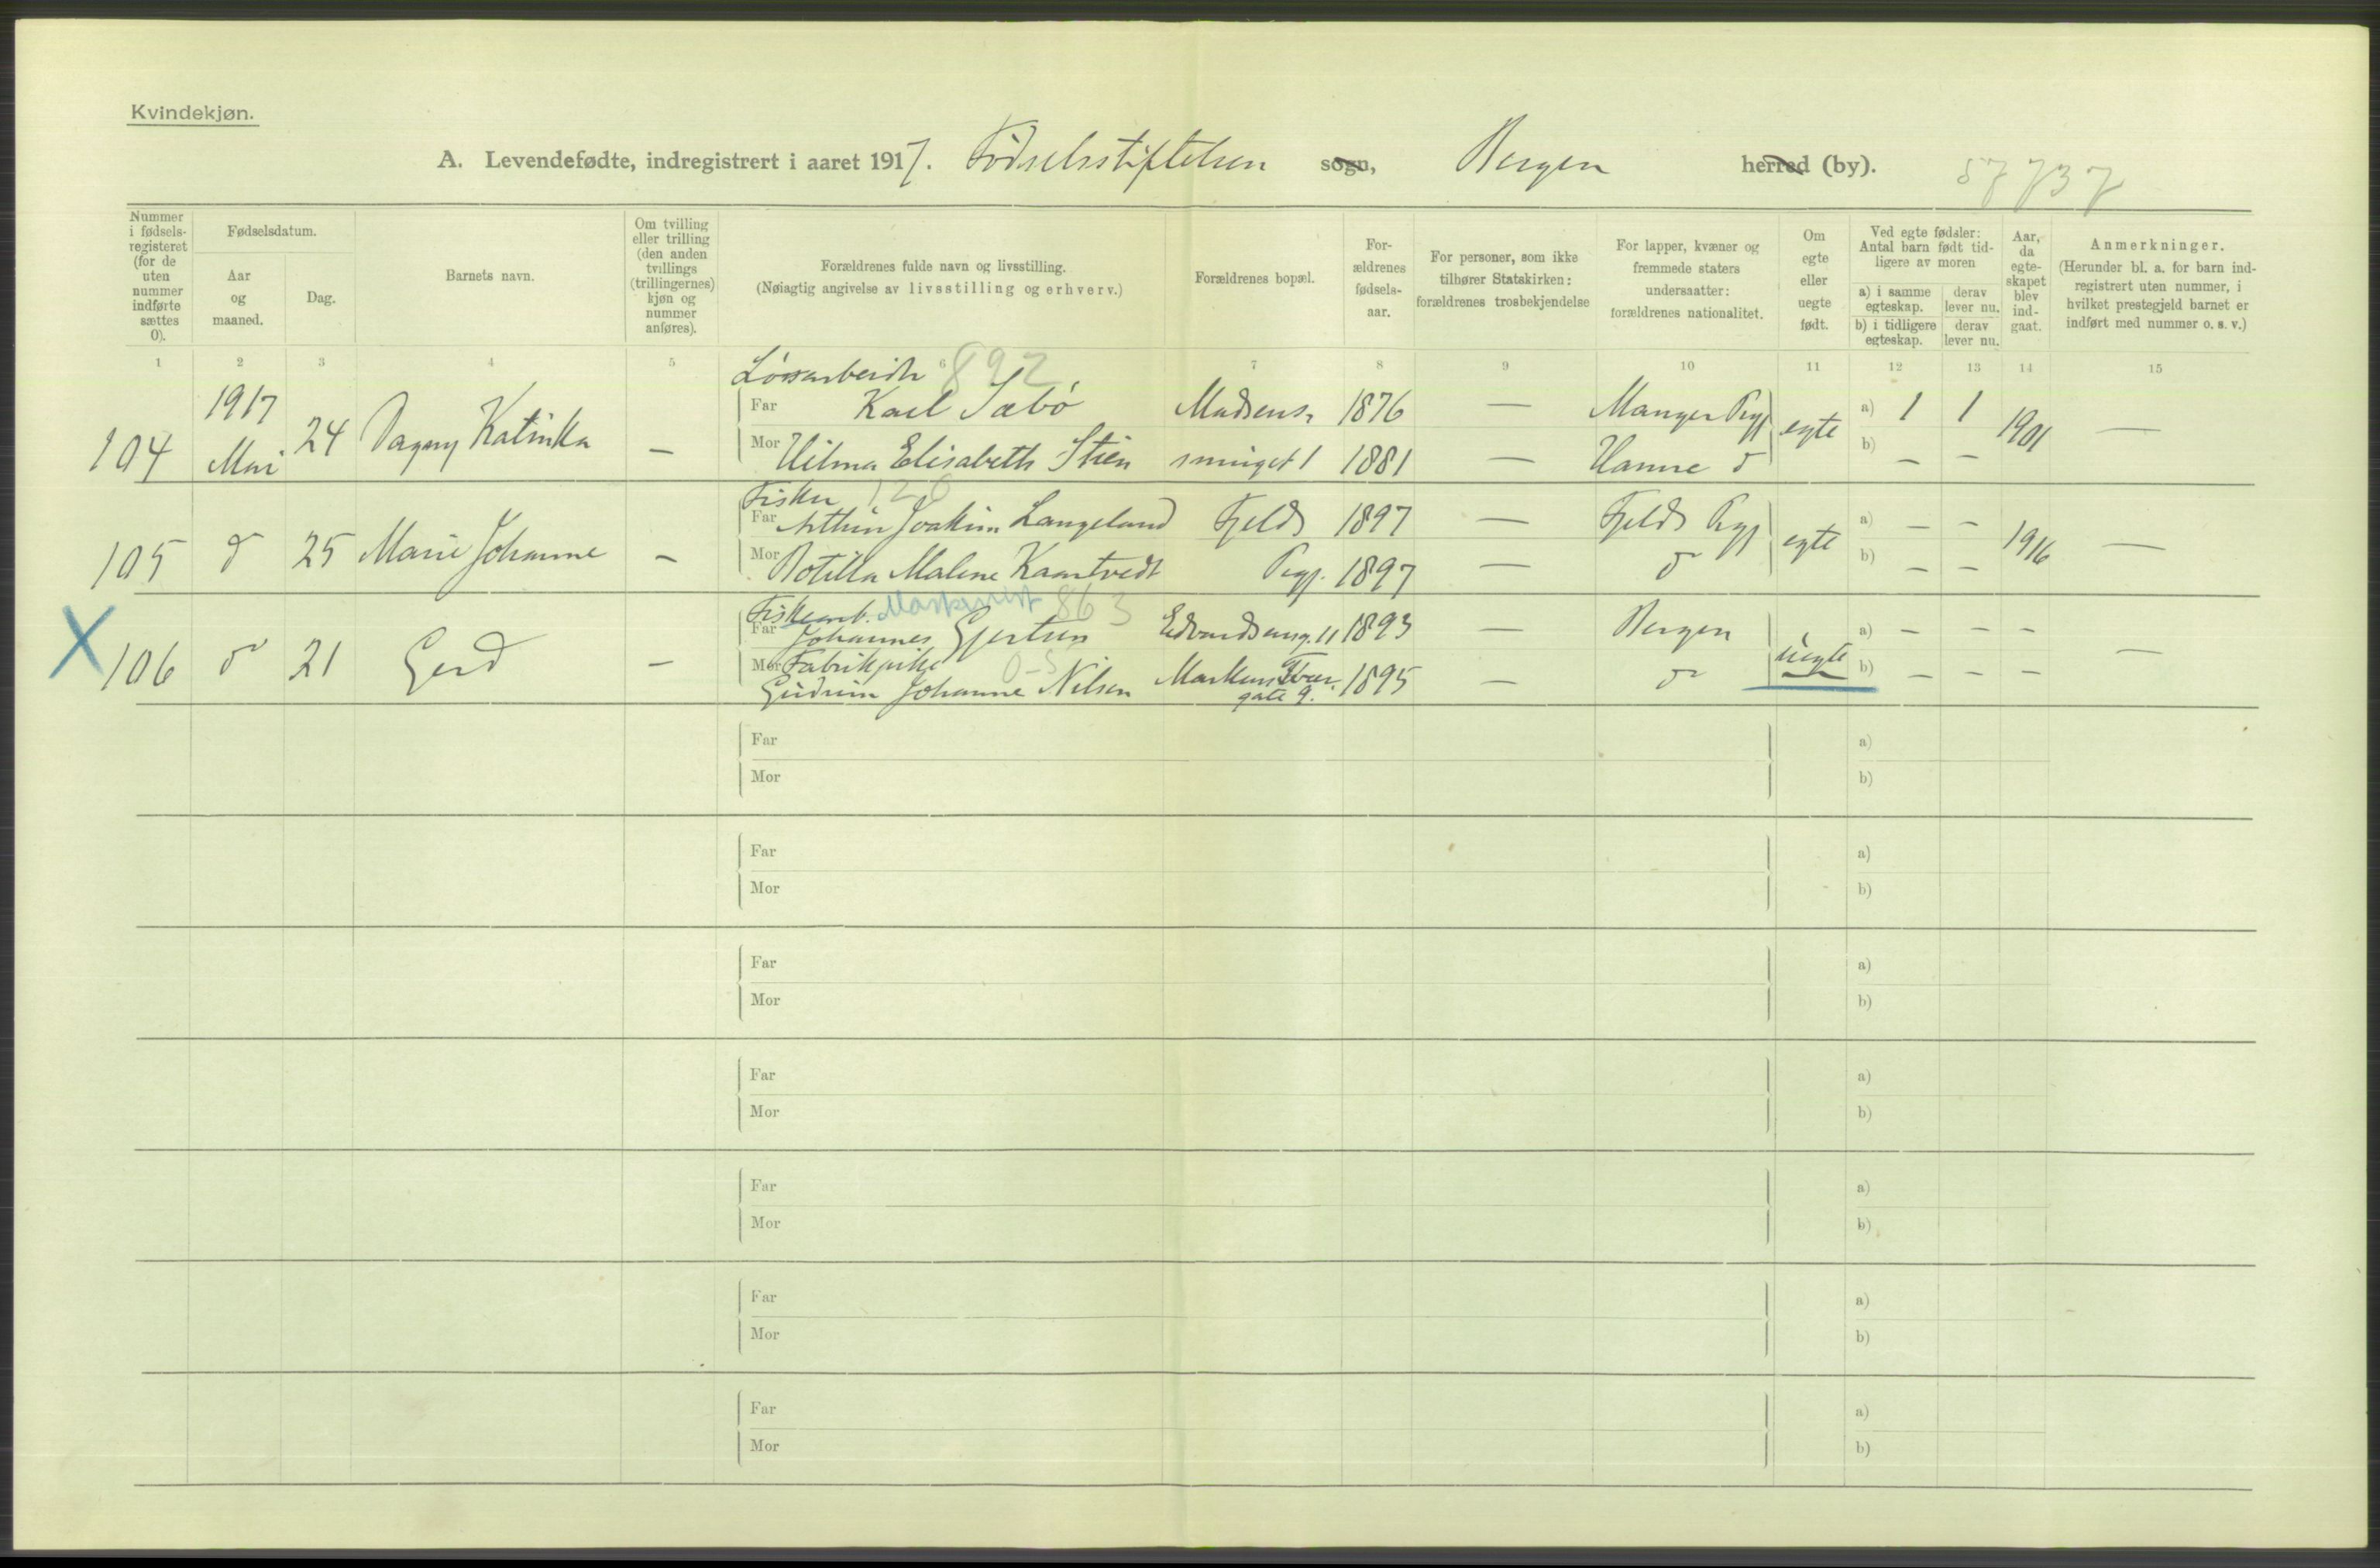 Kvindekjøn.
A. Levendefødte, indregistrert i aaret 1917. Fødselsstiftelsen sogn, Bergen herred (by). 57737
Nummer i fødsels-registeret (for de uten nummer indførte sættes 0).
Fødselsdatum.
Aar og maaned.
Dag.
Barnets navn.
Om tvilling eller trilling (den anden tvillings (trillingernes) kjøn og nummer anføres).
Forældrenes fulde navn og livsstilling.
(Nøiagtig angivelse av livsstilling og erhverv.)
Forældrenes bopæl.
For-ældrenes fødsels-aar.
For personer, som ikke tilhører Statskirken: forældrenes trosbekjendelse
For lapper, kvæner og fremmede staters undersaatter: forældrenes nationalitet.
Om egte eller uegte født.
Ved egte fødsler: Antal barn født tid-ligere av moren
a) i samme egteskap. derav lever nu.
b) i tidligere egteskap. derav lever nu.
Aar, da egte-skapet blev ind-gaat.
Anmerkninger.
(Herunder bl. a. for barn ind-registrert uten nummer, i hvilket prestegjeld barnet er indført med nummer o. s. v.)
1 2 3 4 5 6 7 8 9 10 11 12 13 14 15
Løsarbeider 892
1917 Far Karl Sæbø Madsens 1876 — Manger Prgj a) 1 1
104 Mai 24 Dagny Katinka — egte 1901 —
Mor Hilma Elisabeth Stien smuget 1 1881 — Hamre do b) — —
Fisker 120
Far Arthur Joakim Langeland Fjeld 1897 — Fjeld Prgj a) — —
105 do 25 Marie Johanne — egte 1916 —
Mor Botilla Malene Kaartvedt Prgj. 1897 — do b) — —
Fiskearb. Maskinist 863
Far Johannes Gjertsen Edvardseng. 11 1893 — Bergen a) — — —
X 106 do 21 Gerd — uegte —
Mor Fabrikpike 0-5
Gudrun Johanne Nilsen Markens Tver gate 9. 1895 — do b) — — —
Far a)
Mor b)
Far a)
Mor b)
Far a)
Mor b)
Far a)
Mor b)
Far a)
Mor b)
Far a)
Mor b)
Far a)
Mor b)